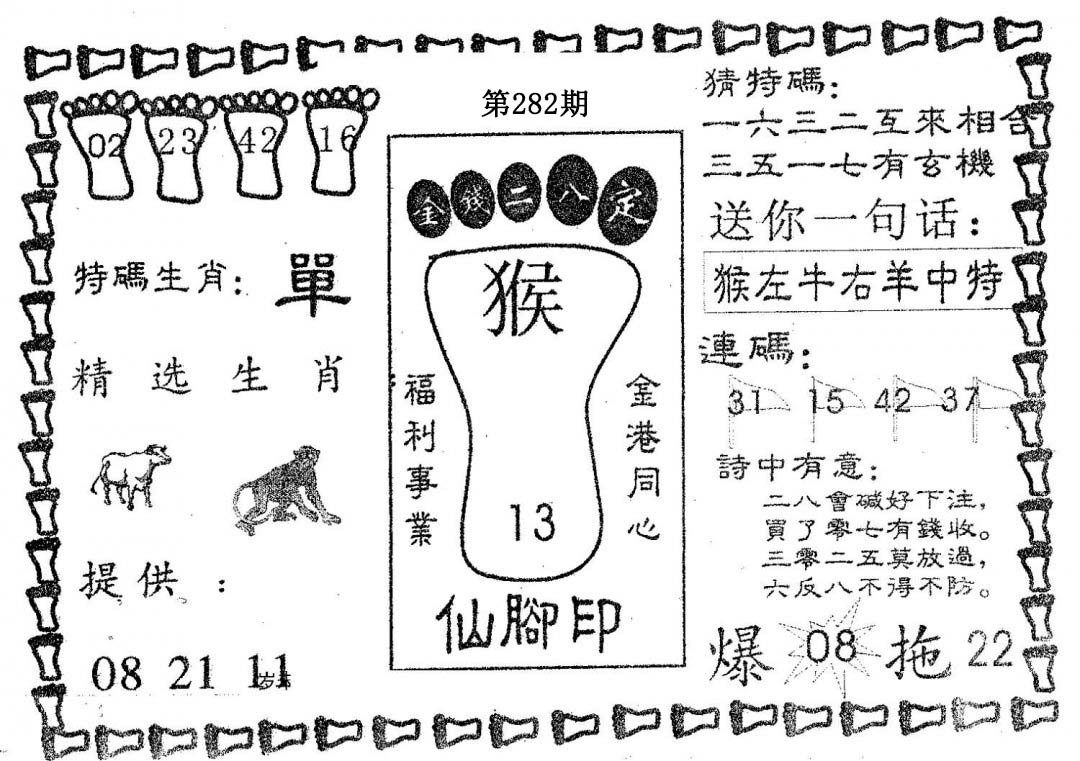 第282期
02 23 42 16
特碼生肖：單
精选生肖
提供：
08 21 11
金錢二八定
猴
福利事業
金港同心
13
仙腳印
猜特碼：
一六三二互來相合
三五一七有玄機
送你一句话：
猴左牛右羊中特
連碼：
31 15 42 37
詩中有意：
二八會碱好下注，
買了零七有錢收。
三零二五莫放過，
六反八不得不防。
爆 08 拖 22